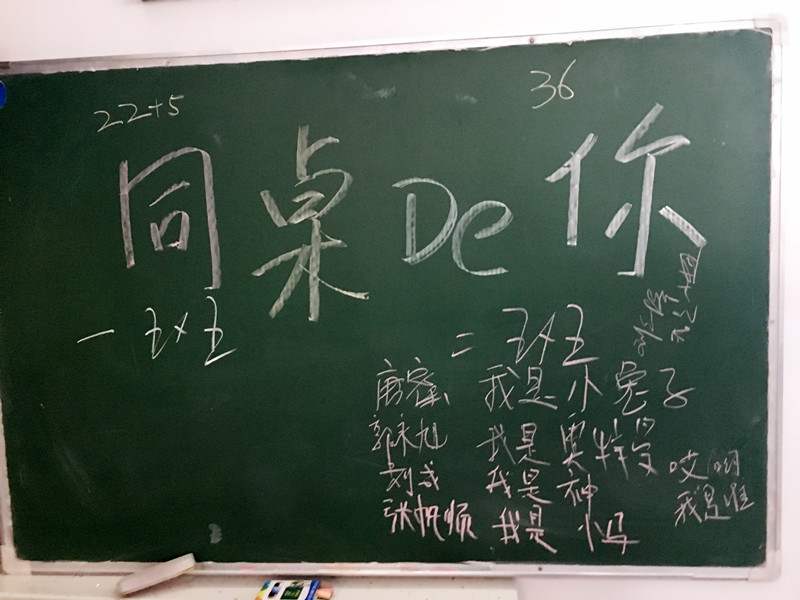 22+5
36
同桌De你
一班
二班
唐蜜 我是小兔子
郭永旭 我是奥特曼
刘成 我是神
张帆顺 我是妈
哎哟
我是谁